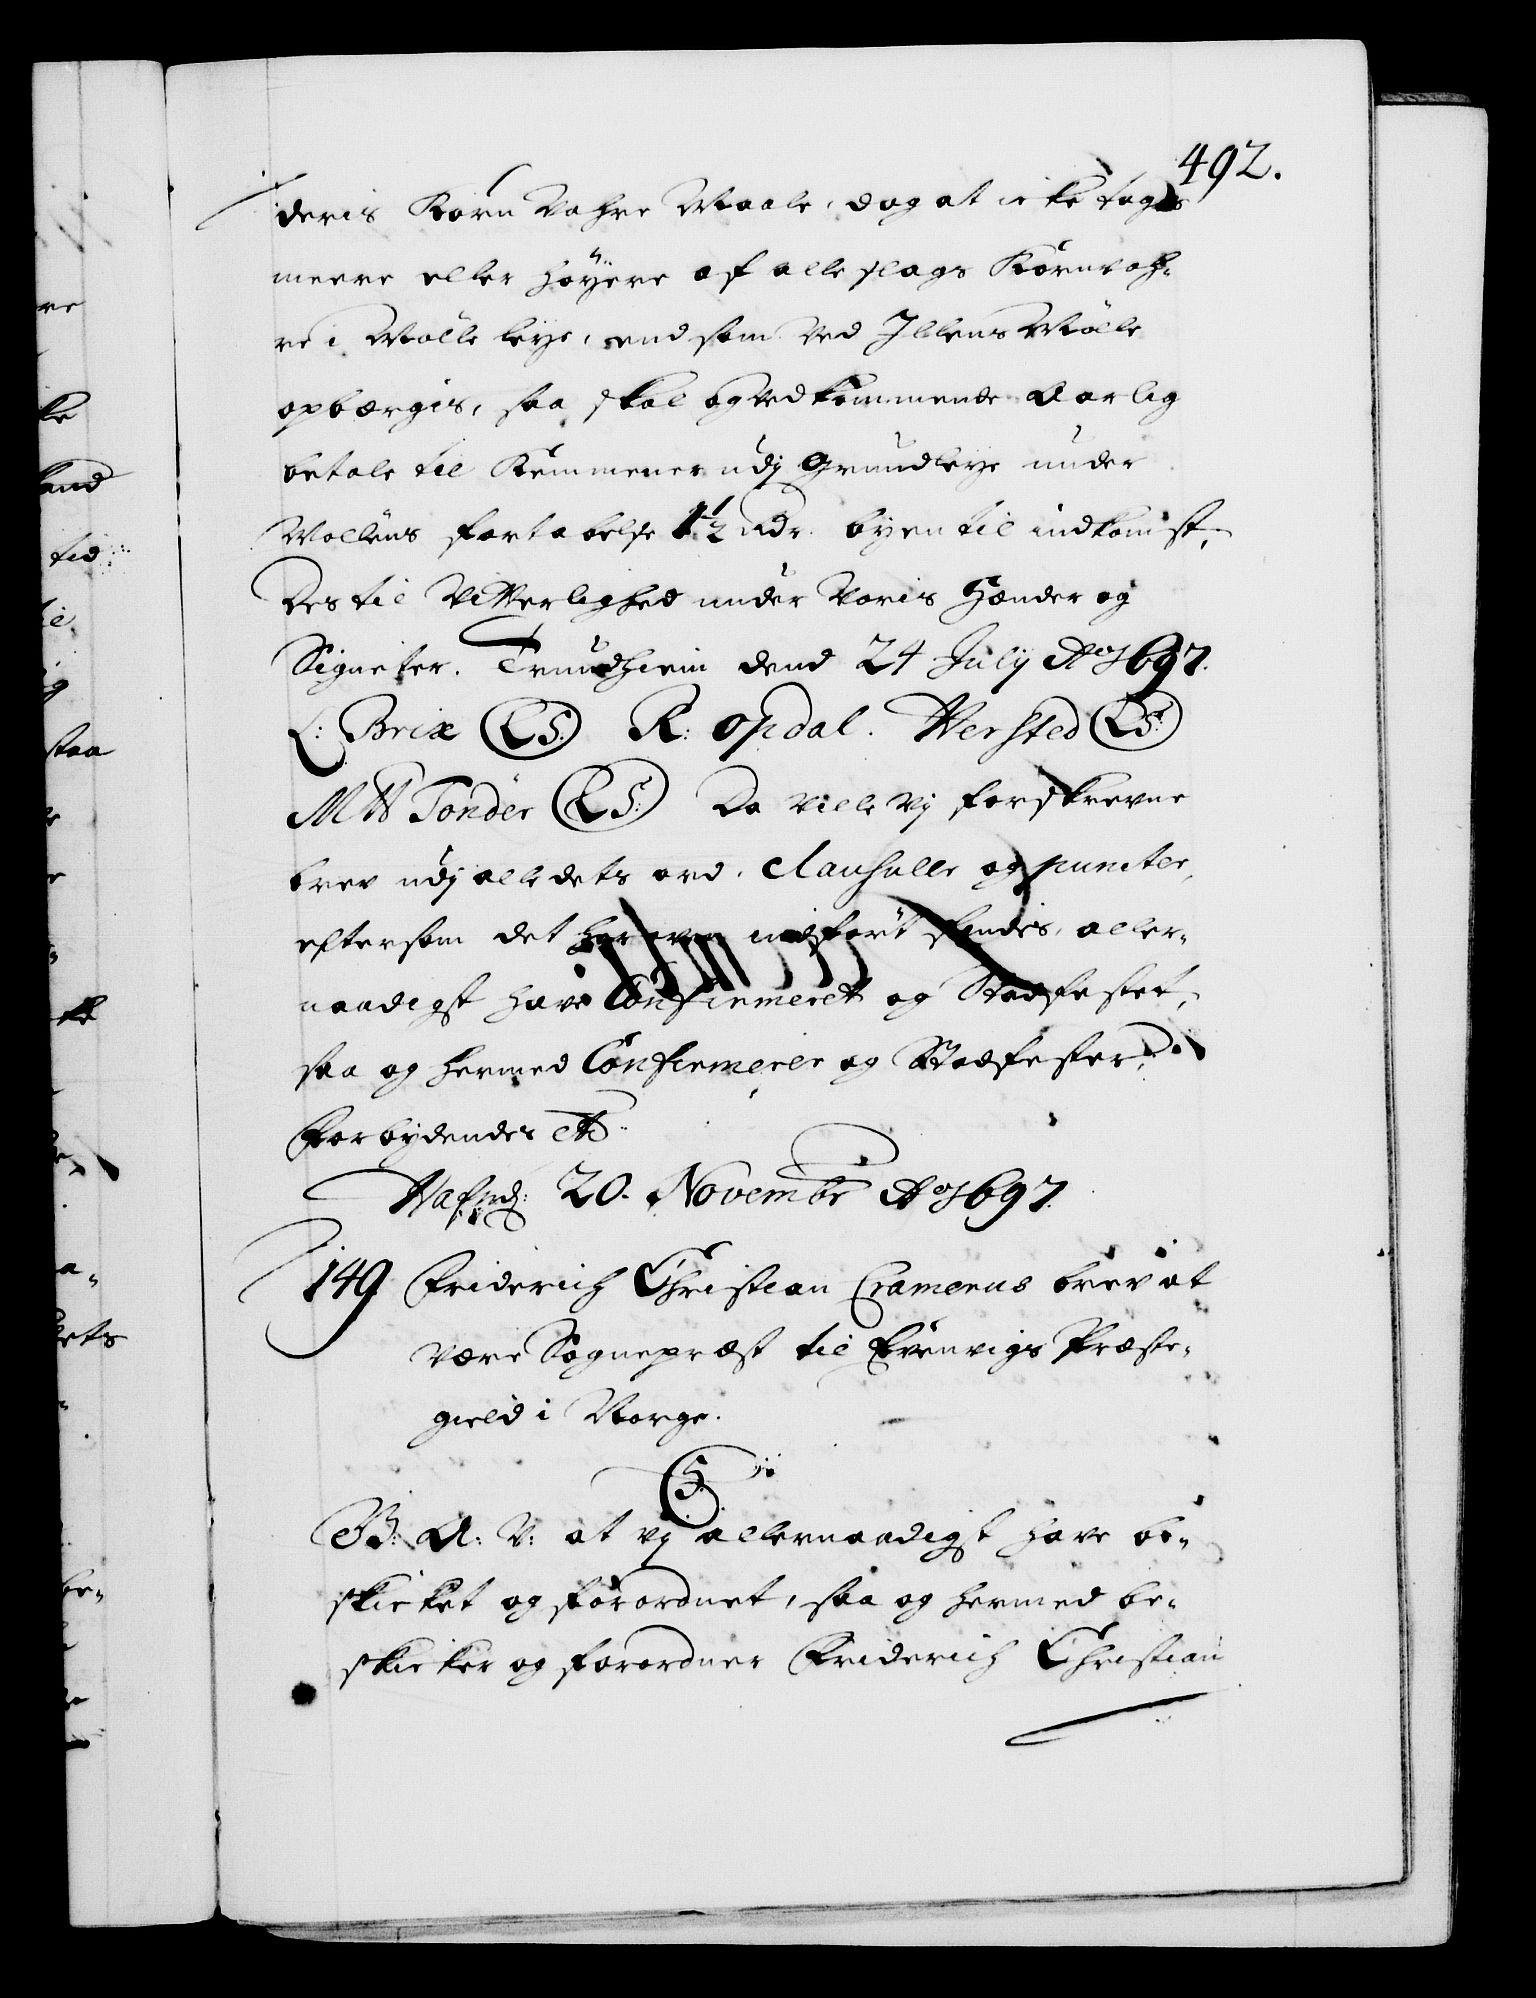 492.
deris Korn Vahre Maale, dog at icke tages
meere eller høyere af alle slags Kornvah-
re i Mølle leye, end som ved Ihlens Mølle
opbærgis, saa skal og vedkommende Aarlig
betale til Kemmener udj Grundleye under
Møllens fortabelse 1½ Rdr. byen til indkomst,
Des til Vitterlighed under Voris Hænder og
Signeter. Trundhiem dend 24 Julij Ao 1697.
C: Brix (L.S.) R: Opdal. Wersted (L.S.)
M W Tonder (L.S.) Da ville Vj forskrevne
brev udj alle dets ord, Clausuller og puncter,
eftersom det her oven indført findes, aller-
naadigst have Confirmeret og Stadfestet,
saa og hermed Confirmerer og Stadfester,
Forbydendes etc
Hafnd: 20. Novembr Ao 1697.
149 Friderich Christian Cramerus brev at
være Sognepræst til Evenvigs Præste-
gield i Norge.
C5.
G: A: V: at vj allernaadigst have be-
skicket og forordnet, saa og hermed be-
skicker og forordner Friderich Christian